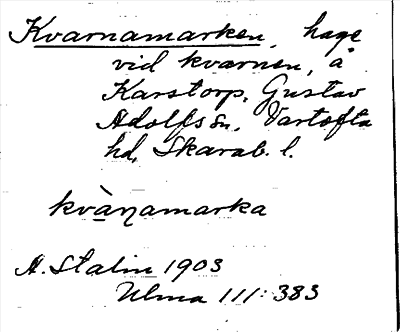 Kvarnamarken, hage
vid kvarnen, å
Karstorp, Gustav
Adolfs sn, Vartofta
hd, Skarab. l.
kvàn̨amarka
A. Stalin 1903
Ulma 111:383